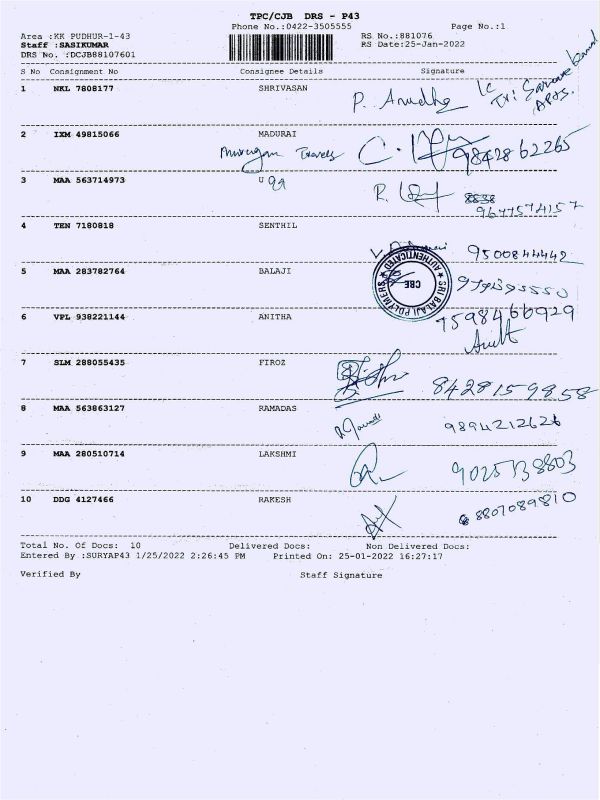 TPC/CJB DRS - P43
Phone No.:0422-3505555 Page No.:1
Area :KK PUDHUR-1-43 RS No.:881076
Staff :SASIKUMAR RS Date:25-Jan-2022
DRS No. :DCJB88107601
S No Consignment No Consignee Details Signature
1 NKL 7808177 SHRIVASAN
P. Anudha
2 IXM 49815066 MADURAI
Murugan Travels 9842862265
3 MAA 563714973 U 99
9677574157
4 TEN 7180818 SENTHIL
9500844442
5 MAA 283782764 BALAJI
SRI BALAJI POLYMERS CBE AUTHENTICATED
6 VPL 938221144 ANITHA 7598466929
Anitha
7 SLM 288055435 FIROZ 8428159858
8 MAA 563863127 RAMADAS 9894212626
9 MAA 280510714 LAKSHMI 9025738803
10 DDG 4127466 RAKESH 8807089810
Total No. Of Docs: 10 Delivered Docs: Non Delivered Docs:
Entered By :SURYAP43 1/25/2022 2:26:45 PM Printed On: 25-01-2022 16:27:17
Verified By Staff Signature